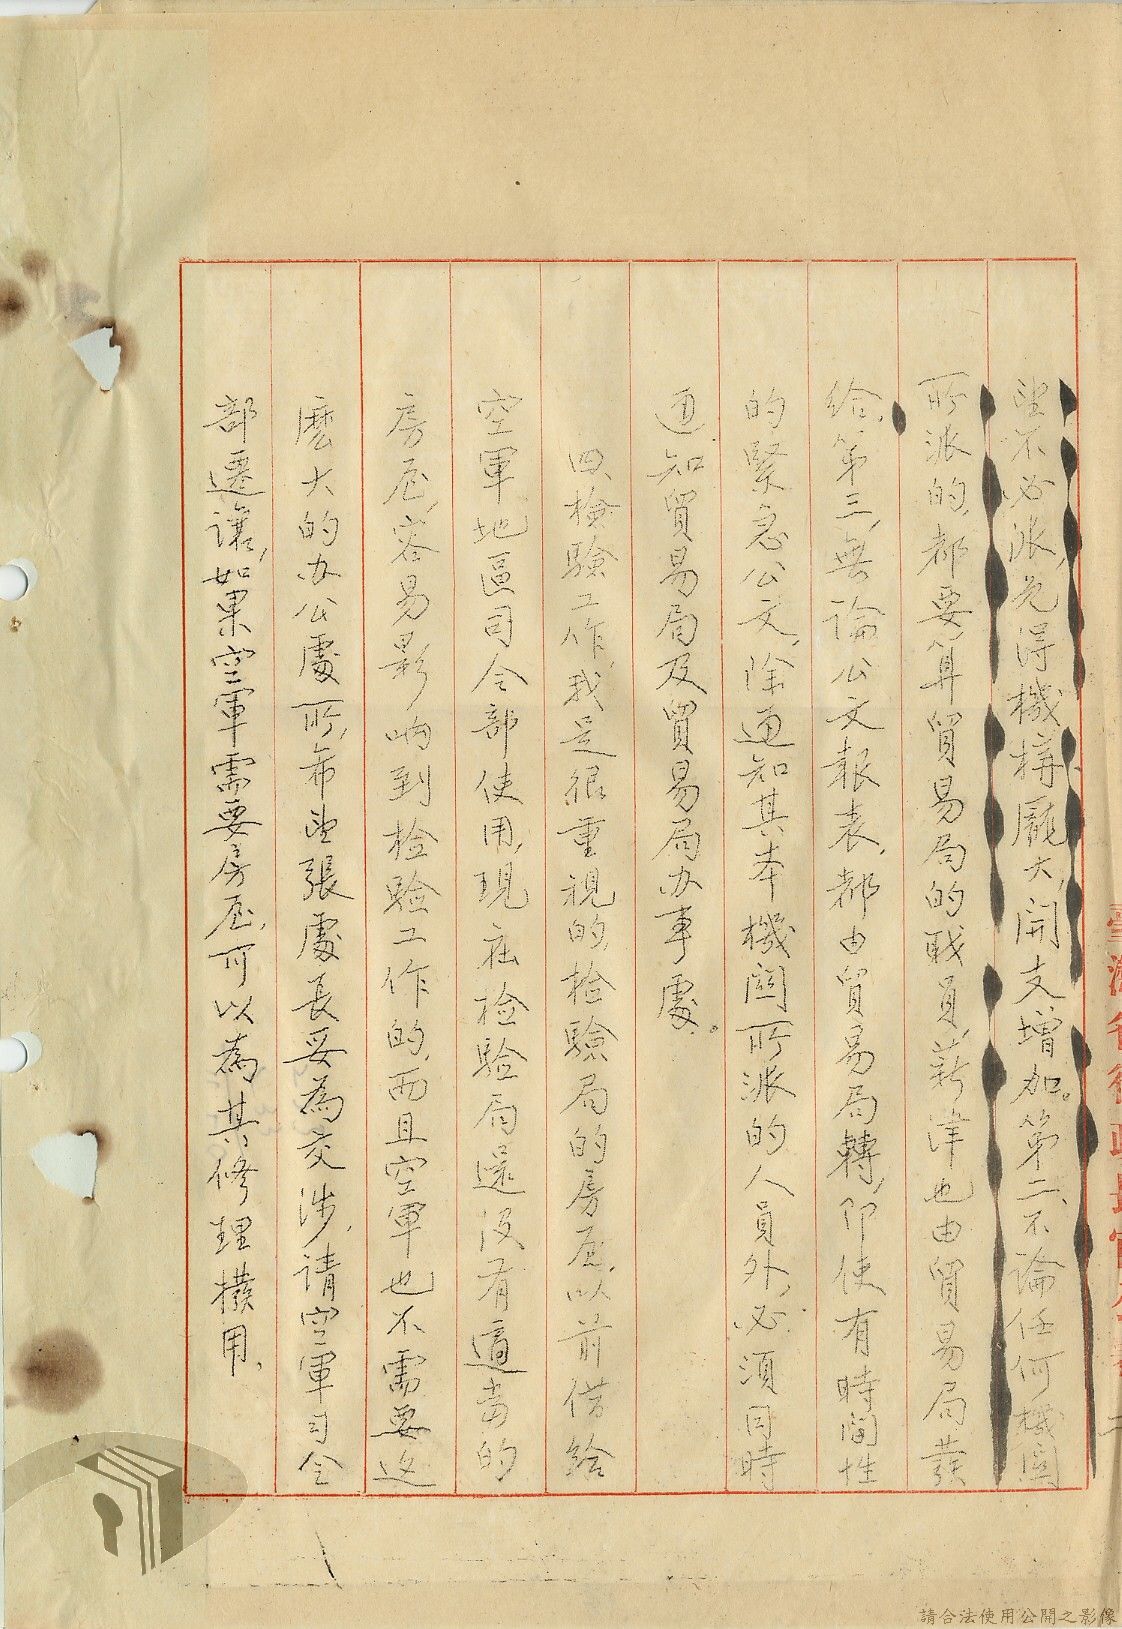 望不必派，免得機構龐大，開支增加。第二、不論任何機関
所派的，都要算貿易局的职員，薪津也由貿易局發
給。第三，無論公文報表，都由貿易局轉，即使有時間性
的緊急公文，除通知其本機関所派的人員外，必須同時
通知貿易局及貿易局办事處。
四、檢驗工作，我是很重視的，檢驗局的房屋，以前借給
空軍地區司令部使用，現在检验局還沒有適当的
房屋，容易影响到检验工作的，而且空軍也不需要这
麼大的办公處所，希望張處長妥為交涉，请空軍司令
部遷讓，如果空軍需要房屋，可以為其修理撥用，
請合法使用公開之影像